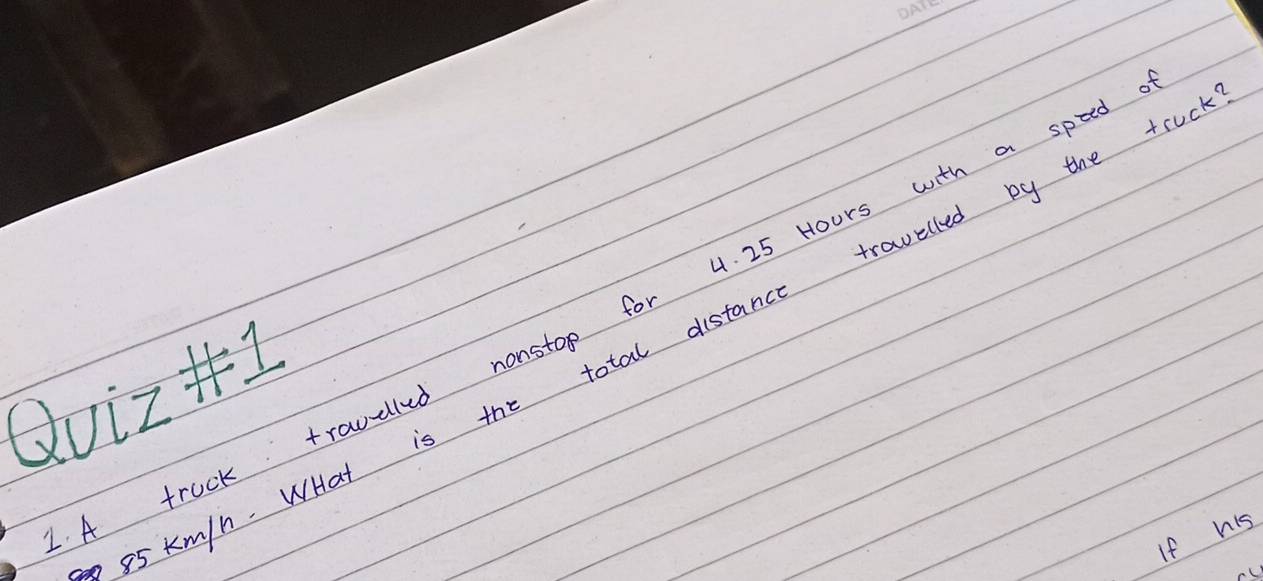 DATE
Quiz #1
1. A truck travelled nonstop for 4.25 Hours with a speed of
85 km/h. WHat is the total distance travelled by the truck?
If his